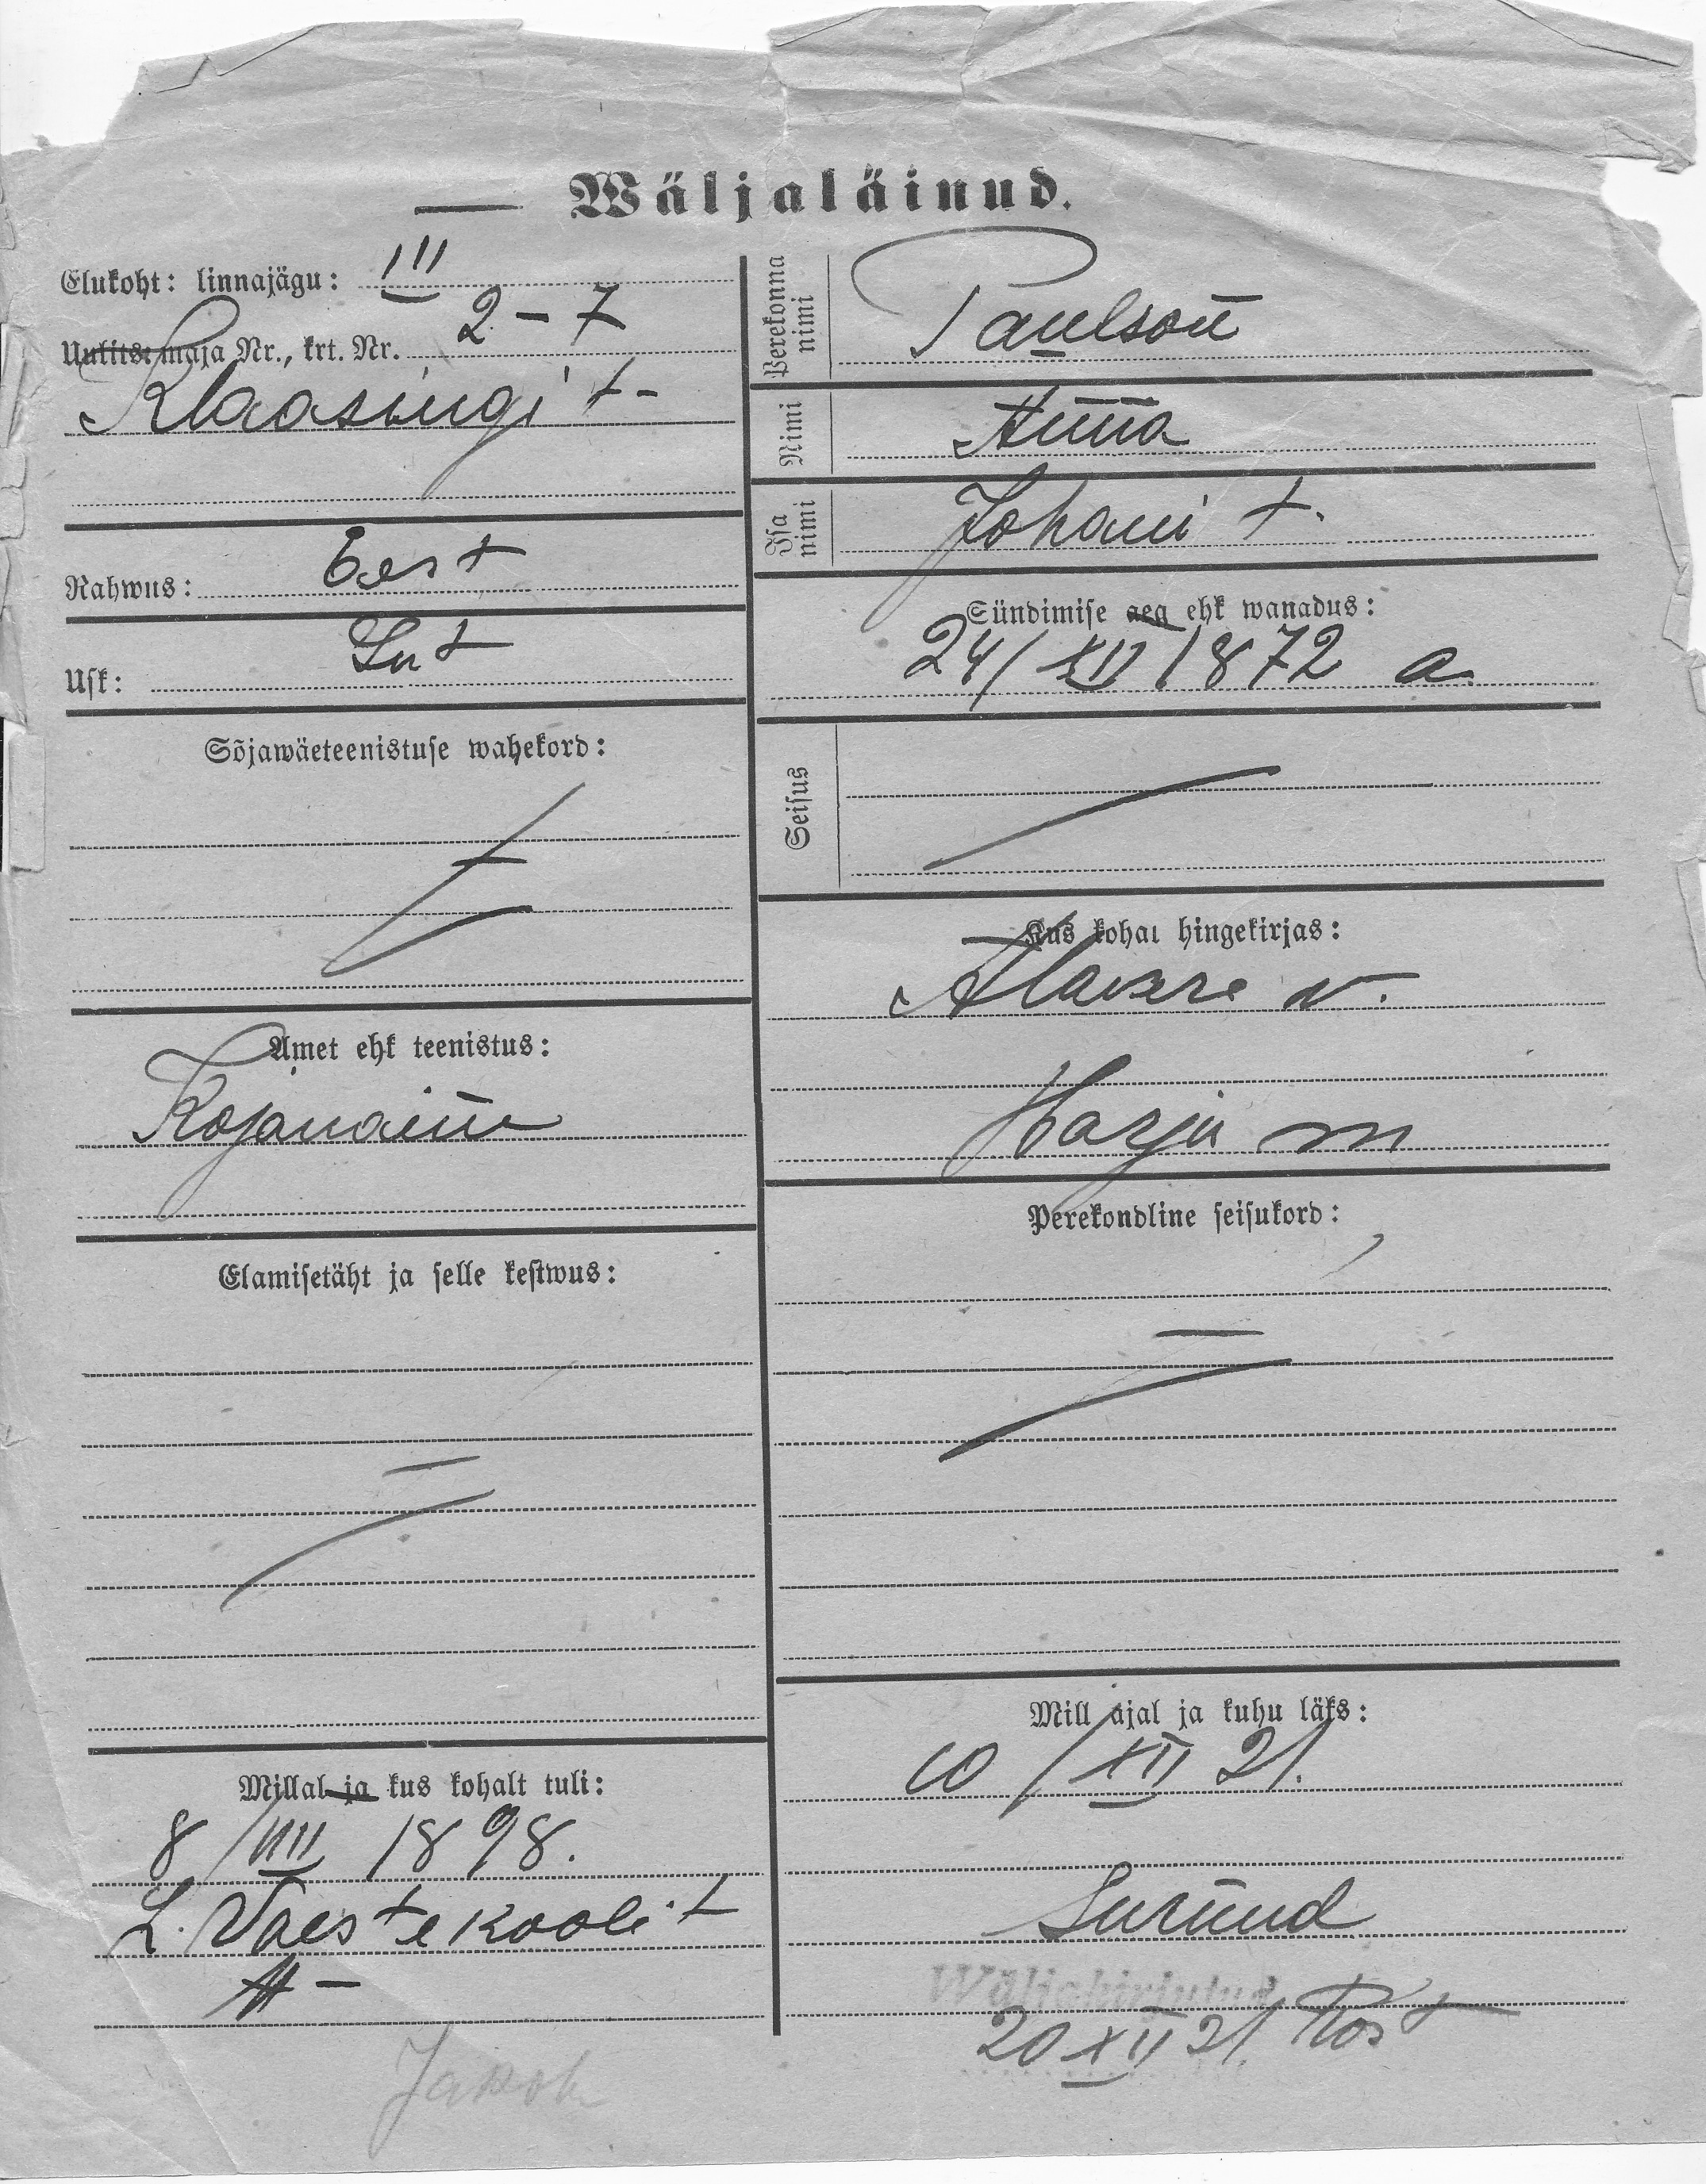 Wäljaläinud.
Elukoht: linnajägu: III
Uulits: maja Nr., krt. Nr. 2-7
Klaasingi t-
Rahwus: Eest
Usk: Lut
Sõjawäeteenistuse wahekord:
Amet ehk teenistus:
Kojanaine
Elamisetäht ja selle kestwus:
Millal ja kus kohalt tuli:
8/VIII 1898.
L. Vaestekooli t
Jakob
Perekonna nimi Paulson
Nimi Anna
Isa nimi Johani t.
Sündimise aeg ehk wanadus:
24/XII 1872 a.
Seisus
Kus kohal hingekirjas:
Alavere v.
Harju m
Perekondline seisukord:
Mill ajal ja kuhu läks:
10/XII 21.
Surnud
Wäljakirjutud
20 XII 21.